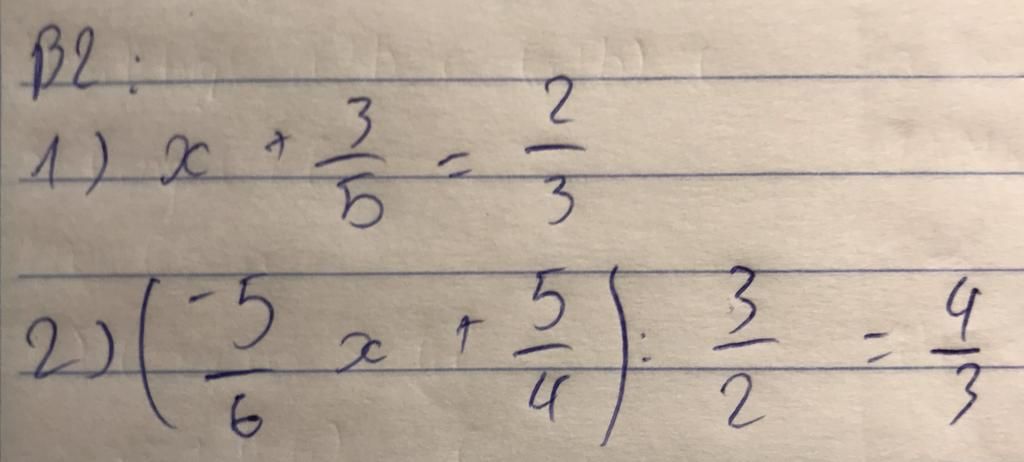 B2:
1) x + 3/5 = 2/3
2) (-5/6 x + 5/4) : 3/2 = 4/3